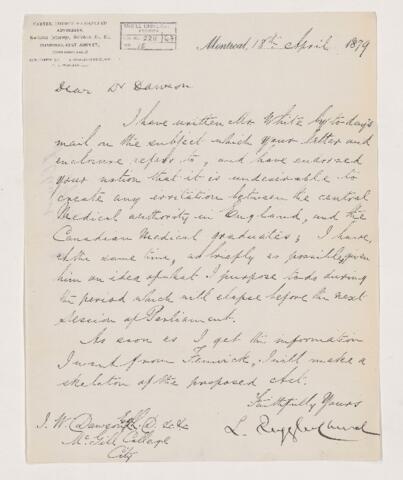 ADVOCATES,
MCGILL UNIVERSITY
ARCHIVES
ACC. NO. 220
REF. 16
Montreal, 18th April 1879
Dear Dr Dawson
I have written Mr White by to-day's
mail on the subject which your letter and
enclosure refers to, and have endorsed
your notion that it is undesirable to
create any irritation between the central
Medical authority in England, and the
Canadian Medical graduates; I have,
at the same time, as briefly as possible, given
him an idea of what I purpose to do during
the period which will elapse before the next
Session of Parliament.
As soon as I get the information
I want from Fenwick, I will make a
skeleton of the proposed Act.
Faithfully Yours
L. Ruggles Church
J. W. Dawson Esq L.L.D. &c &c
McGill College
City